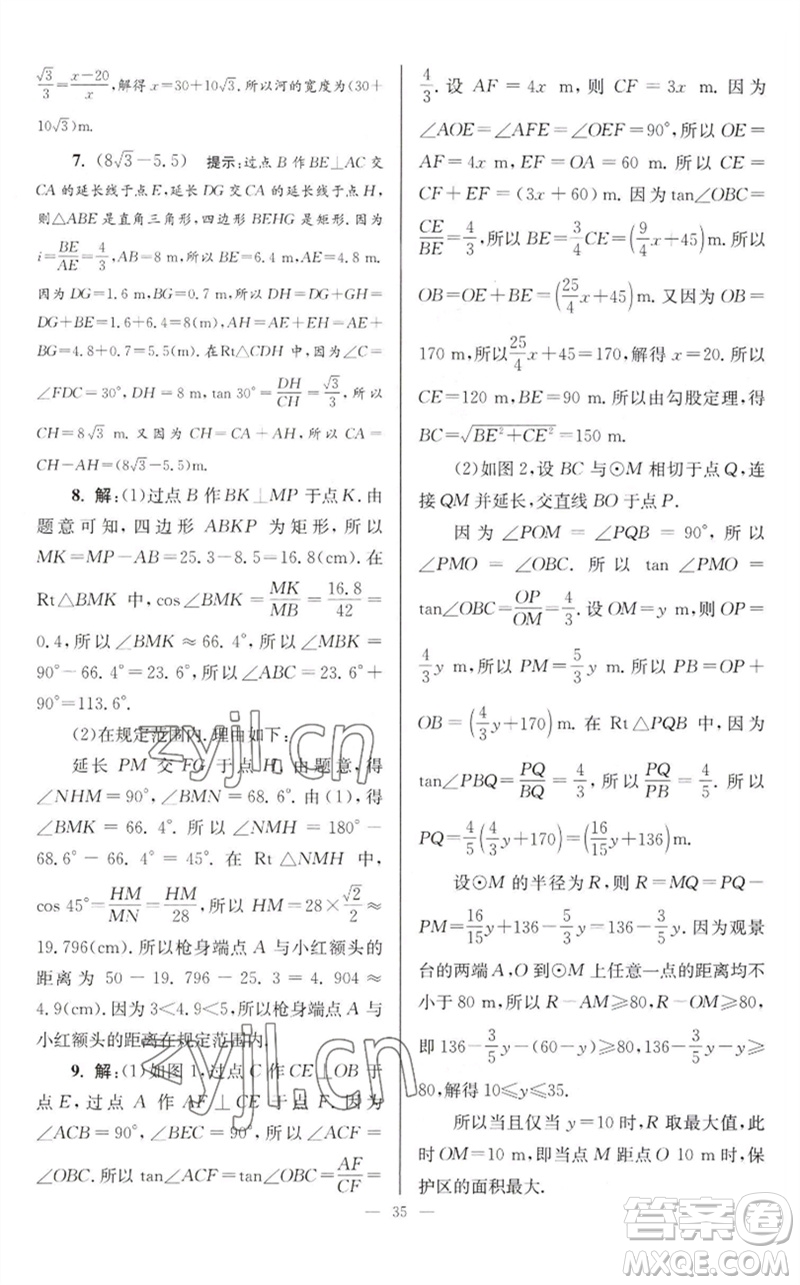 √3/3=(x−20)/x,解得 x=30+10√3.所以河的宽度为(30+
10√3)m.
7. (8√3−5.5) 提示:过点 B 作 BE⊥AC 交
CA 的延长线于点 E,延长 DG 交 CA 的延长线于点 H,
则△ABE 是直角三角形,四边形 BEHG 是矩形.因为
i=BE/AE=4/3,AB=8 m,所以 BE=6.4 m,AE=4.8 m.
因为 DG=1.6 m,BG=0.7 m,所以 DH=DG+GH=
DG+BE=1.6+6.4=8(m),AH=AE+EH=AE+
BG=4.8+0.7=5.5(m).在Rt△CDH 中,因为∠C=
∠FDC=30°,DH=8 m,tan 30°=DH/CH=√3/3,所以
CH=8√3 m.又因为 CH=AC+AH,所以 AC=
CH−AH=(8√3−5.5)m.
8. 解:(1)过点 B 作 BK⊥MP 于点 K.由
题意可知,四边形 ABKP 为矩形,所以
MK=MP−AB=25.3−8.5=16.8(cm).在
Rt△BMK 中,cos∠BMK=MK/MB=16.8/42=
0.4,所以∠BMK≈66.4°,所以∠MBK=
90°−66.4°=23.6°,所以∠ABC=23.6°+
90°=113.6°.
(2)在规定范围内.理由如下:
延长 PM 交 FG 于点 H.由题意,得
∠NHM=90°,∠BMN=68.6°.由(1),得
∠BMK=66.4°.所以∠NMH=180°−
68.6°−66.4°=45°.在 Rt△NMH 中,
cos 45°=HM/MN=HM/28,所以 HM=28×√2/2≈
19.796(cm).所以枪身端点 A 与小红额头的
距离为 50−19.796−25.3=4.904≈
4.9(cm).因为 3<4.9<5,所以枪身端点 A 与
小红额头的距离在规定范围内.
9. 解:(1)如图 1,过点 C 作 CE⊥OB 于
点 E,过点 A 作 AF⊥CE 于点 F.因为
∠ACB=90°,∠BEC=90°,所以∠ACF=
∠OBC.所以 tan∠ACF=tan∠OBC=AF/CF=
4/3.设 AF=4x m,则 CF=3x m.因为
∠AOE=∠AFE=∠OEF=90°,所以 OE=
AF=4x m,EF=OA=60 m.所以 CE=
CF+EF=(3x+60)m.因为 tan∠OBC=
CE/BE=4/3,所以 BE=3/4CE=(9/4x+45)m.所以
OB=OE+BE=(25/4x+45)m.又因为 OB=
170 m,所以25/4x+45=170,解得 x=20.所以
CE=120 m,BE=90 m.由勾股定理,得
BC=√(BE²+CE²)=150 m.
(2)如图 2,设 BC 与⊙M 相切于点 Q,连
接 QM 并延长,交直线 BO 于点 P.
因为∠POM=∠PQB=90°,所以
∠PMO=∠OBC.所以 tan∠PMO=
tan∠OBC=OP/OM=4/3.设 OM=y m,则 OP=
4/3y m.所以 PM=5/3y m.所以 PB=OP+
OB=(4/3y+170)m.在 Rt△PQB 中,因为
tan∠PBQ=PQ/BQ=4/3,所以PQ/PB=4/5.所以
PQ=4/5(4/3y+170)=(16/15y+136)m.
设⊙M 的半径为 R,则 R=MQ=PQ−
PM=16/15y+136−5/3y=136−3/5y.因为观景
台的两端 A,O 到⊙M 上任意一点的距离均不
小于 80 m,所以 R−AM≥80,R−OM≥80,
即 136−3/5y−(60−y)≥80,136−3/5y−y≥
80,解得 10≤y≤35.
所以当且仅当 y=10 时,R 取最大值,此
时 OM=10 m,即当点 M 距点 O 10 m 时,保
护区的面积最大.
— 35 —
zyjl.cn
zyjl.cn
答案卷
MXQE.COM